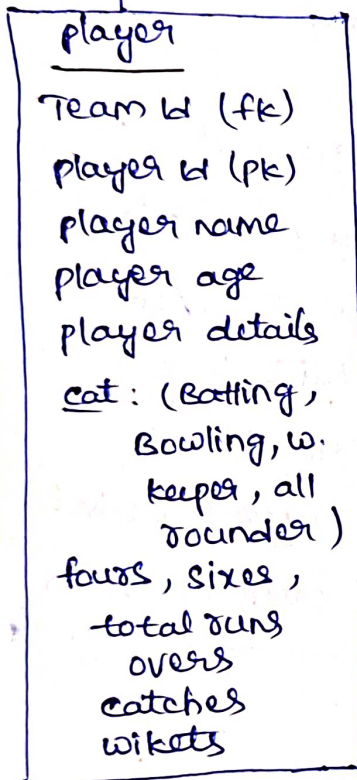 player
Team Id (fk)
player Id (pk)
player name
player age
player details
cat : (Batting,
Bowling, w.
keeper, all
rounder)
fours, sixes,
total runs
overs
catches
wikets